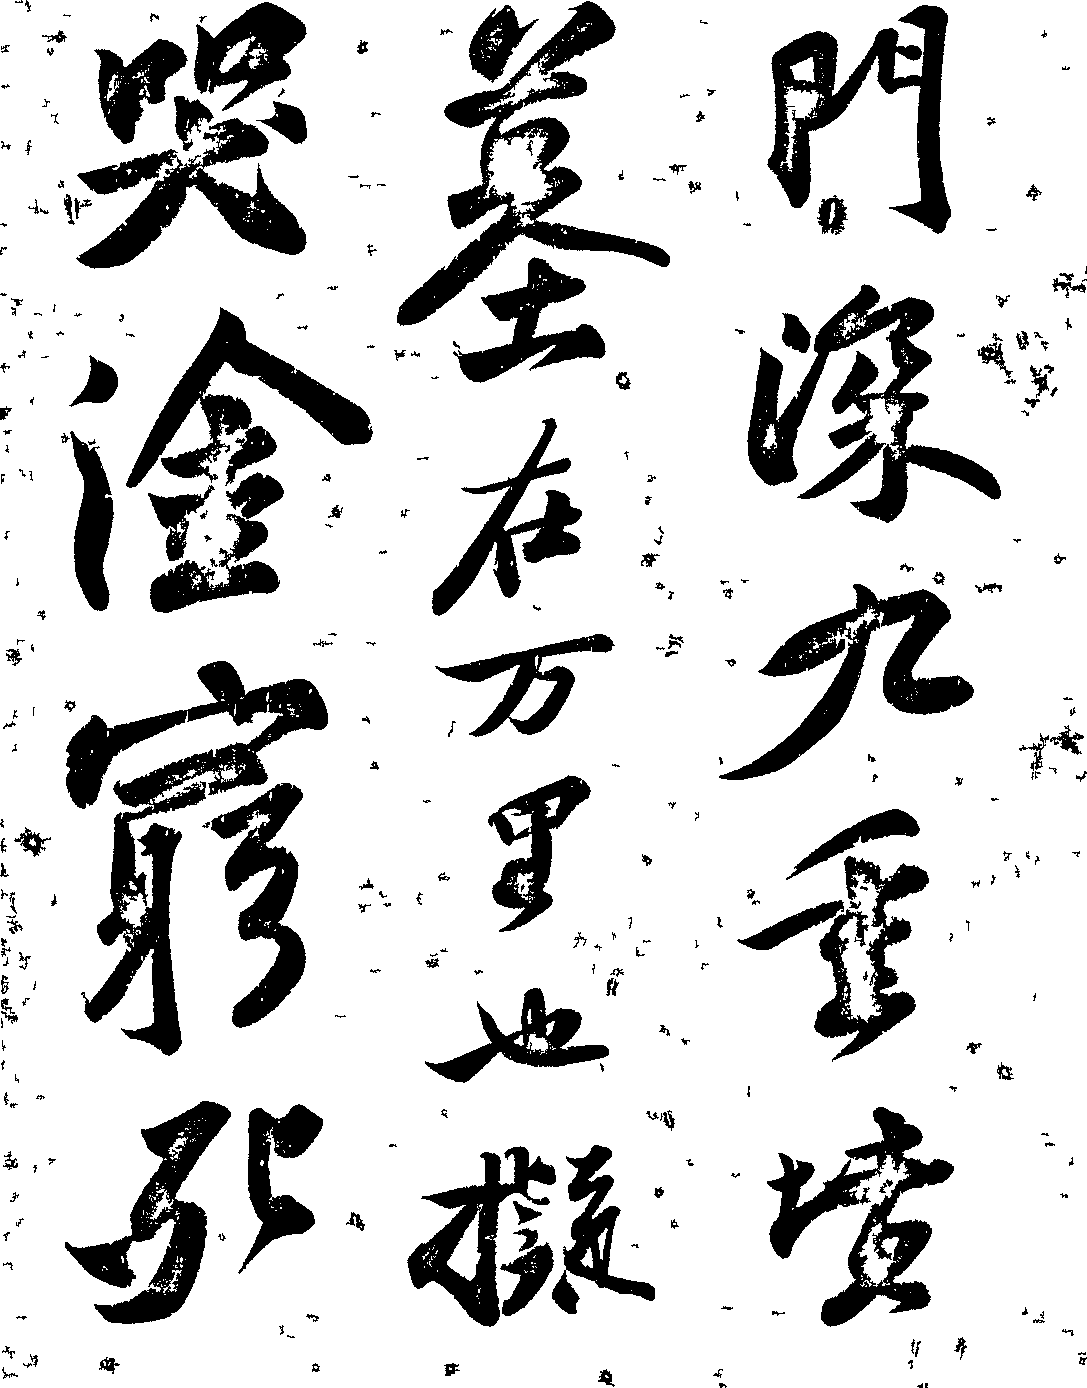 門深九重墳
墓在万里也擬
哭塗窮死